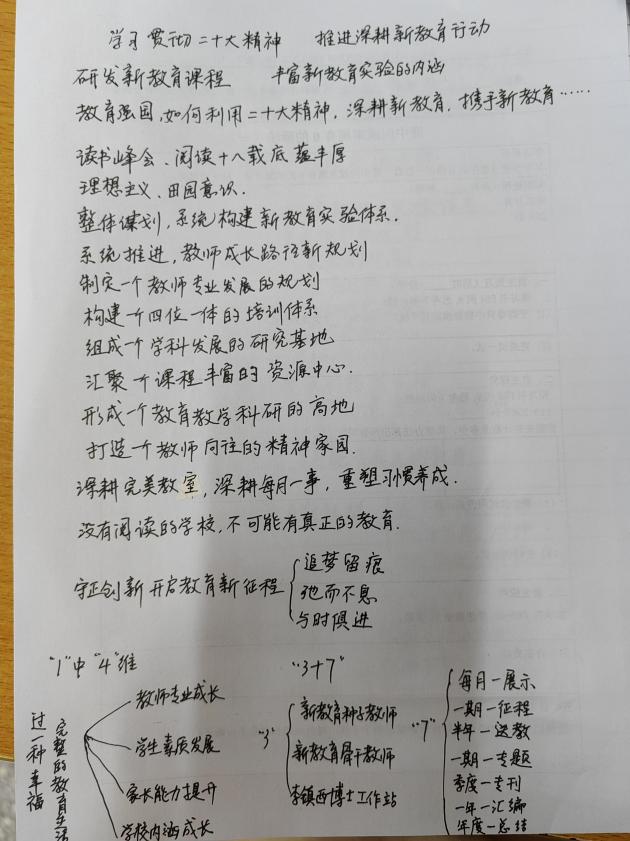 学习贯彻二十大精神 推进深耕新教育行动
研发新教育课程 丰富新教育实验的内涵
教育强国,如何利用二十大精神,深耕新教育,携手新教育……
读书峰会、阅读十八载底蕴丰厚
理想主义、田园意识.
整体谋划,系统构建新教育实验体系.
系统推进,教师成长路径新规划
制定一个教师专业发展的规划
构建一个四位一体的培训体系
组成一个学科发展的研究基地
汇聚一个课程丰富的资源中心.
形成一个教育教学科研的高地
打造一个教师向往的精神家园.
深耕完美教室,深耕每月一事,重塑习惯养成.
没有阅读的学校,不可能有真正的教育.
守正创新开启教育新征程
追梦留痕
弛而不息
与时俱进
"1"中"4"维
过一种幸福
完整的教育生活
教师专业成长
学生素质发展
家长能力提升
学校内涵成长
"3+7"
"3"
新教育种子教师
新教育骨干教师
李镇西博士工作站
"7"
每月一展示
一期一征程
半年一送教
一期一专题
季度一专刊
一年一汇编
年度一总结